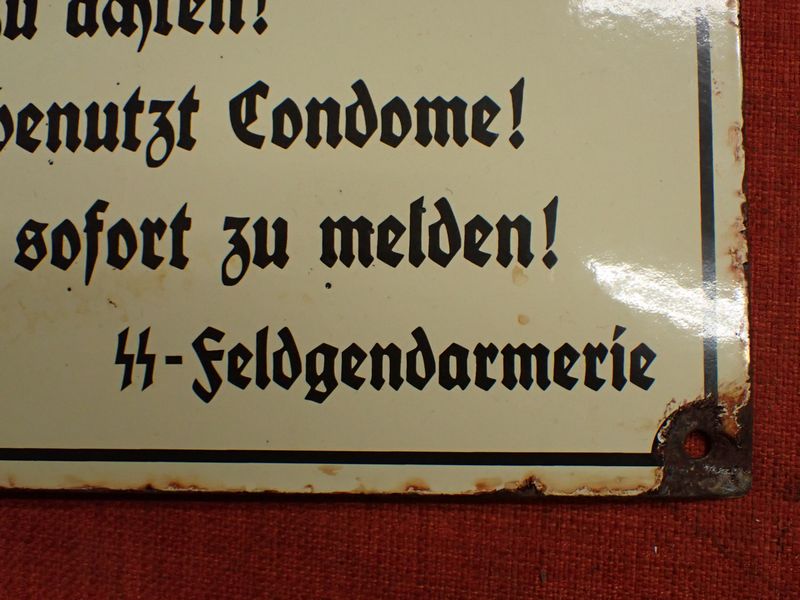 zu achten!
benutzt Condome!
sofort zu melden!
SS-Feldgendarmerie